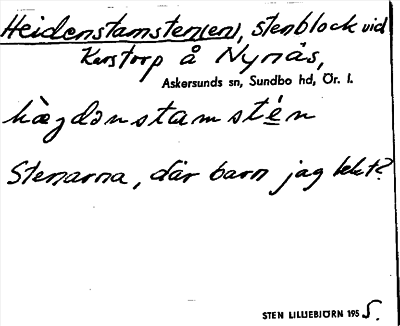 Heidenstamsten(en), stenblock vid
Kerstorp å Nynäs,
Askersunds sn, Sundbo hd, Ör. l.
hàɡdənstamstén
Stenarna, där barn jag lekt?
STEN LILLIEBJÖRN 195 5.